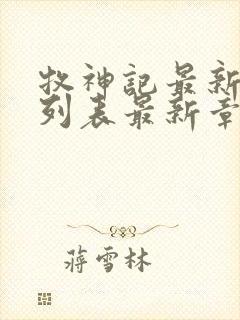 牧神記最新
列表最新章
蔣雪林